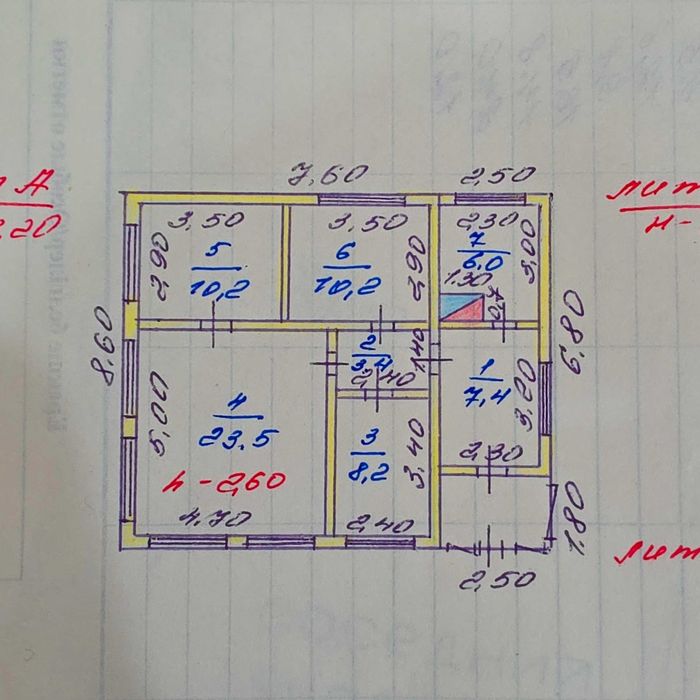 7,60
2,50
А
лит
н-
3,50
3,50
2,30
2,90
5
10,2
6
10,2
2,90
7
6,0
3,00
1.30
0,7
8,60
6,80
2
3,4
1,40
2,40
1
7,4
3,20
5,00
4
23,5
h - 2,60
3
8,2
3,40
2,30
4,70
2,40
1.80
2,50
лит